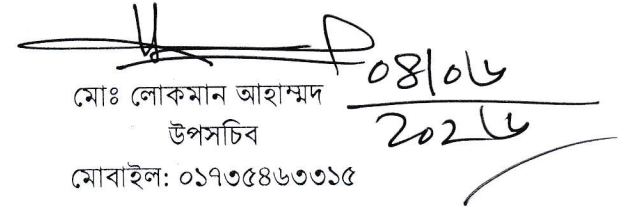 ০৪/০৬
২০২৬
মোঃ লোকমান আহাম্মদ
উপসচিব
মোবাইল: ০১৭৩৫৪৬৩৩১৫